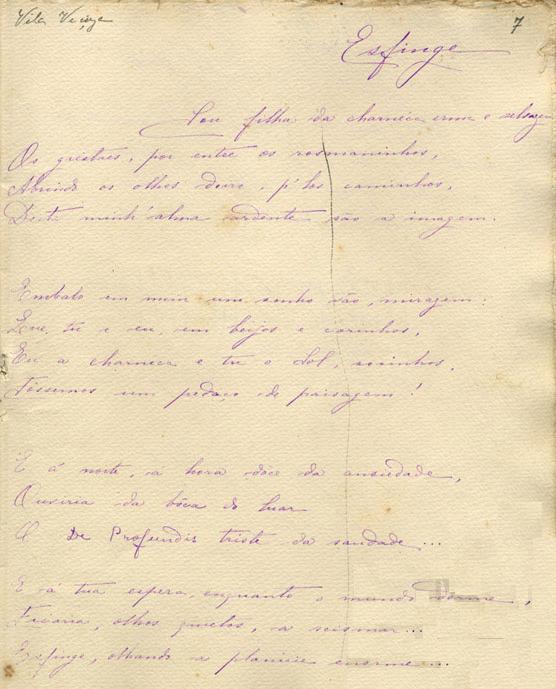 Vila Viçosa
7
Esfinge
Sou filha da charneca erma e selvagem
Os giestaes, por entre os rosmaninhos,
Abrindo os olhos d'oiro, p'los caminhos,
Desta minh'alma ardente são a imagem.
Embalo em mim um sonho vão, miragem:
Que tu e eu, em beijos e carinhos,
Eu a charneca e tu o Sol, sosinhos,
Fossemos um pedaço de paisagem!
E á noite, á hora dôce da ansiedade,
Ouviria da bôca do luar
O De Profundis triste da saudade...
E á tua espera, enquanto o mundo dorme,
Ficaria, olhos quietos, a scismar...
Esfinge, olhando a planicie enorme...